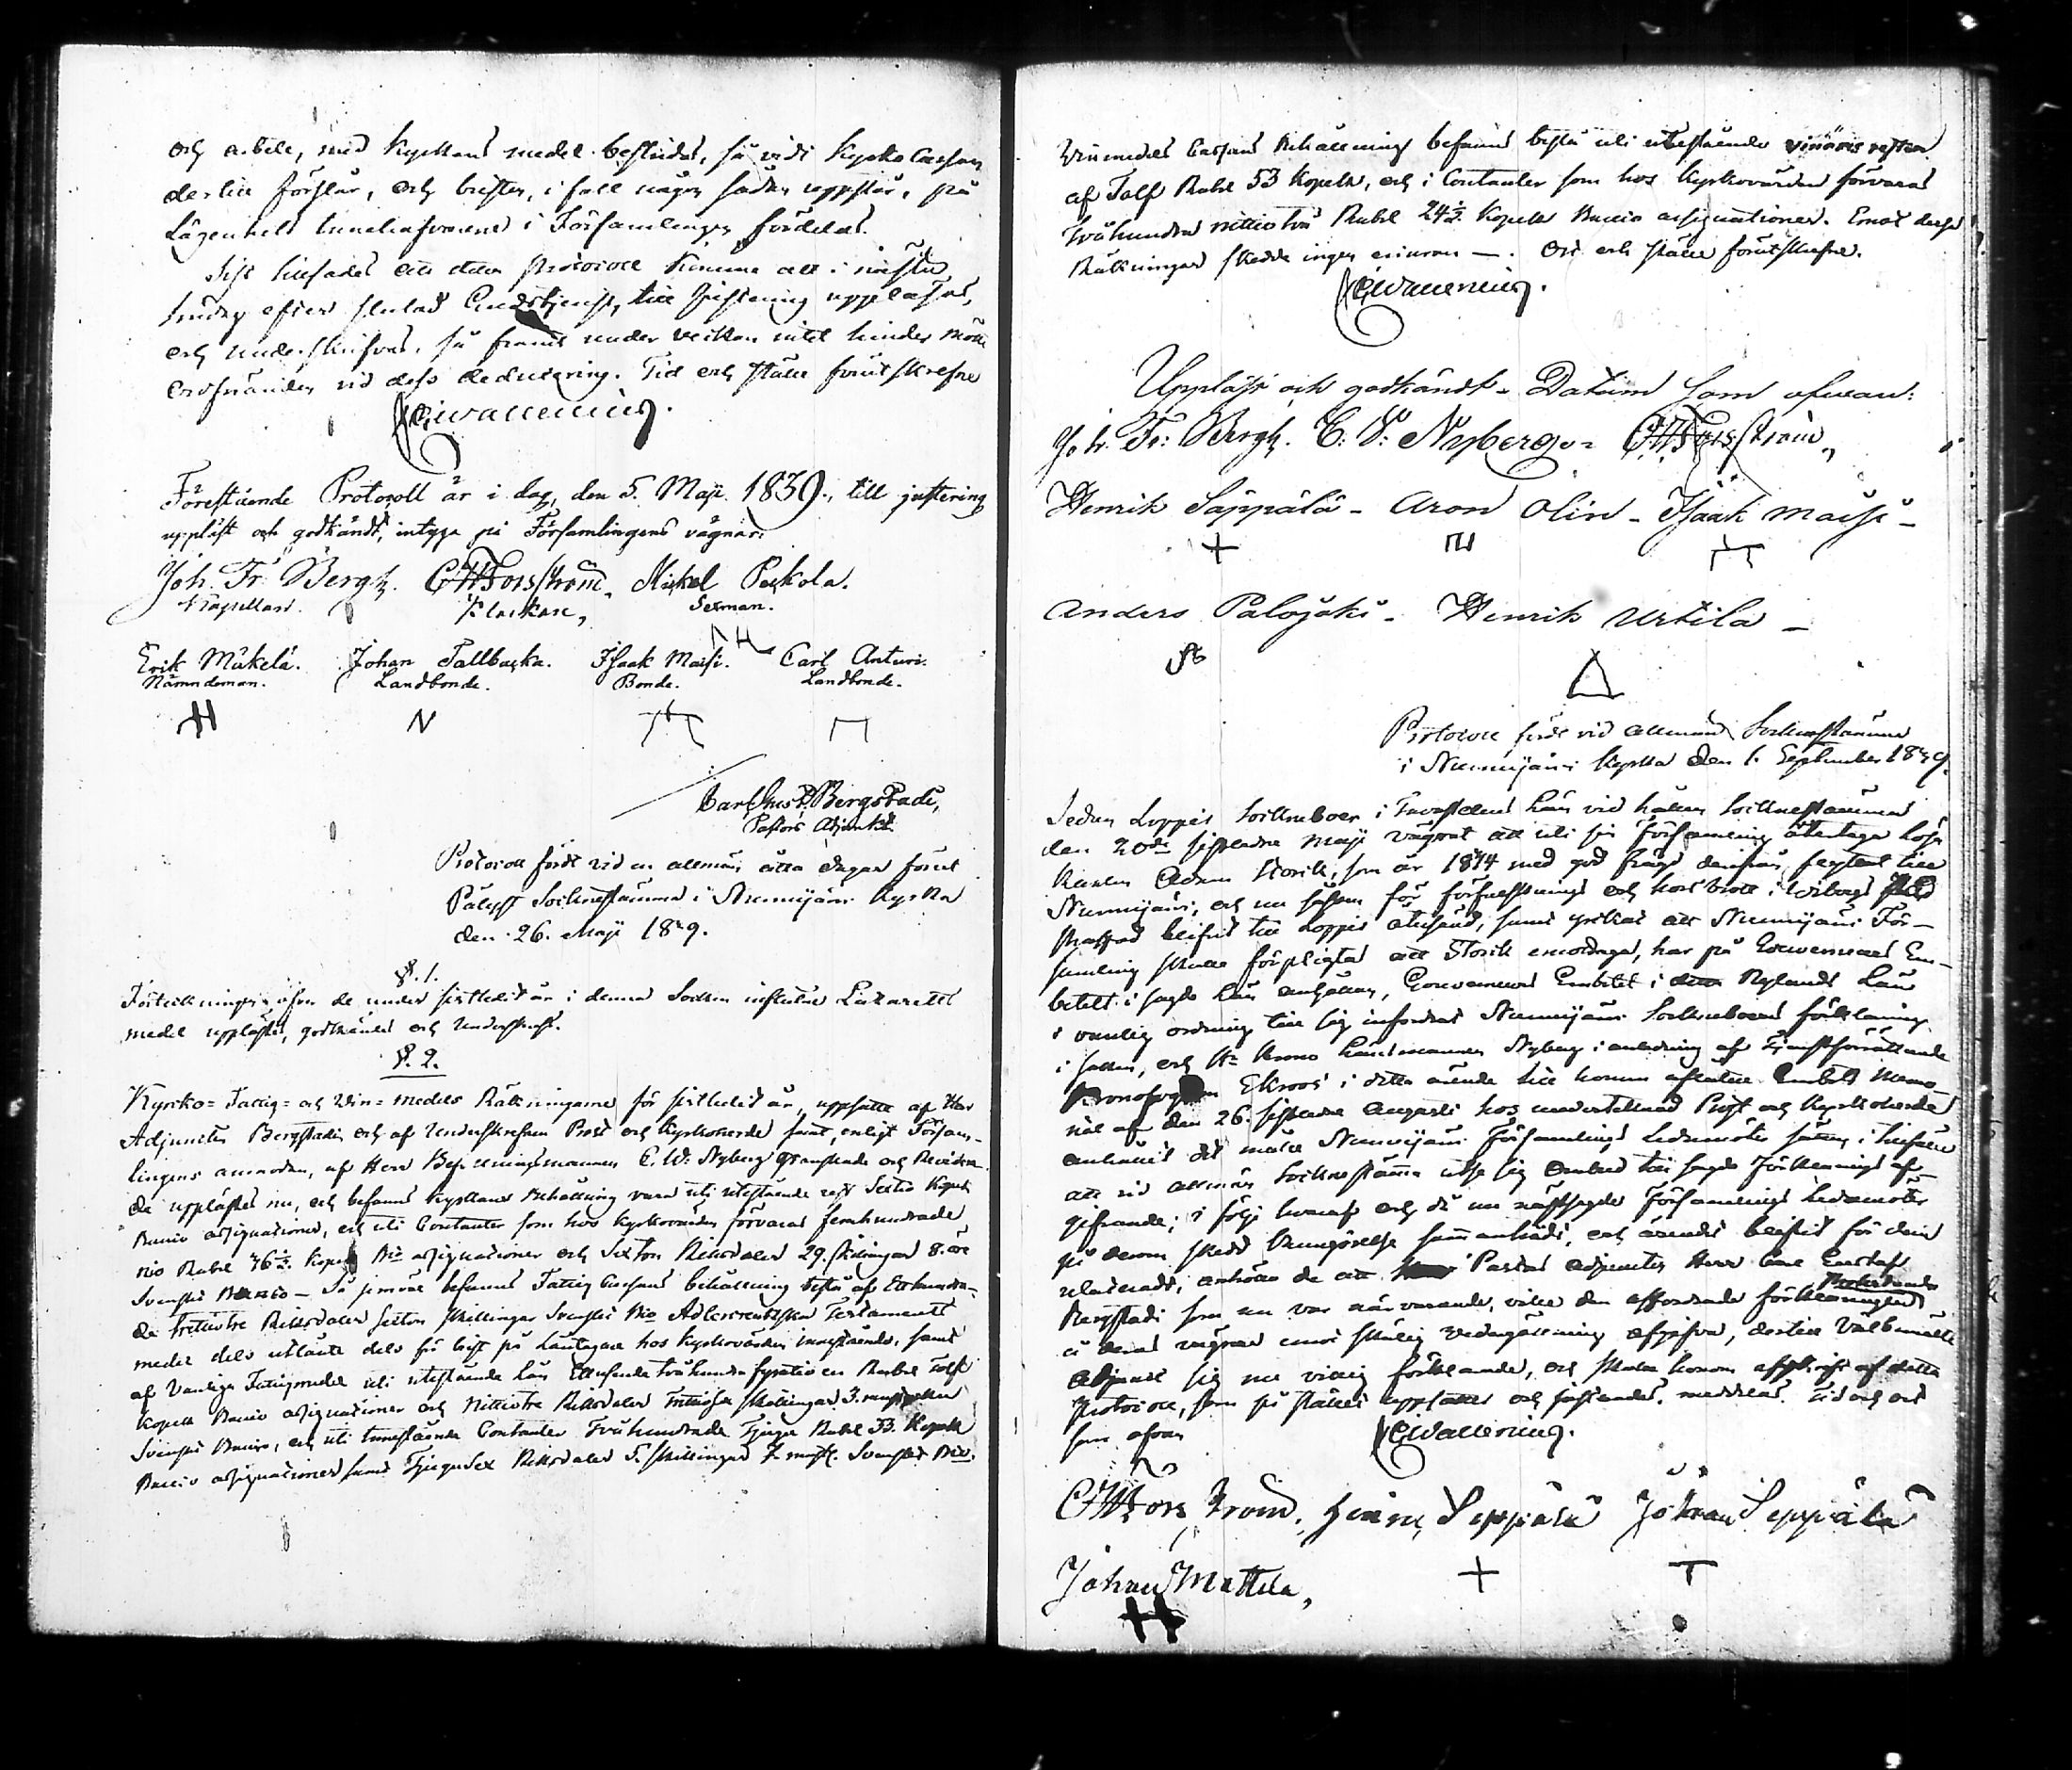 och arbete, med Kyrkans medel bestridas, så vidt Kyrko Cassan
dertill förslår, och bristen, i fall någon sådan uppstår, på
Lägenhets innehafvarene i Församlingen fördelas.
Sist tillsades att detta Protocoll kommer att i nästa
söndag efter slutad Gudstjenst, till justering uppläsas,
och underskrifvas, så framt under veckan intet hinder möter
Ordföranden vid dess redigering. Tid och ställe förutskrefne
C. Wallenius.
Förestående Protocoll är i dag, den 5. Maji 1839., till justering
uppläst och godkändt, intyga på Församlingens vägnar:
Joh. Fr. Bergh. CWForsström. Mickel Peckola.
Kapellan. Klockare, Sexman.
Erik Mäkelä. Johan Tallbacka. Isaak Maisi. Carl Anturi.
Nämndeman. Landbonde. Bonde. Landbonde.
Carl Gust. Bergstadi,
Pastors Adjunkt.
Protocoll fördt vid en allmän, åtta dagar förut
Pålyst Sockenstämma i Nummijärvi Kyrka
den 26. Maji 1839.
§. 1.
Förteckningen öfver de under sistledit år i denna Socken influtne Lazaretts
medel upplästes, godkändes och Underskrefs.
§. 2.
Kyrko- Fattig- och Vin- medels Räkningarne för sistledit år, uppsatte af Herr
Adjuncten Bergstadi och af Underskrefven Prost och Kyrkoherde samt, enligt Församlingens
anmodan, af Herr Befallningsmannen C. W. Nyberg granskade och Reviderade
upplästes nu, och befanns Kyrkans Behållning vara uti utestående rest Sextio Kopek
Banco assignationer, och uti Contanter som hos Kyrkovärden förvaras femhundrade
nio Rubel 76½ Kopek Bco assignationer och Sexton Riksdaler 29. skillingar 8. öre
Svenskt Banco — Så jemväl befanns Fattig Cassans behållning bestå af Etthundrade
trettiotre Riksdaler sexton skillingar Svenskt Bco Adlercreutziska Testaments
medel dels utlånte dels på låntagare hos Kyrkovärden innestående, samt
af Vanliga Fattigmedel uti utestående lån Ettusende tvåhundra fyratio en Rubel Tolf
Kopek Banco assignationer och Nittiotre Riksdaler Trettiosex skillingar 3. runstycken
Svenskt Banco, och uti innestående Contanter Tvåhundrade Tjugu Rubel 33. Kopek
Banco assignationer samt Tjugusex Riksdaler 5. skillingar 7. runst. Svenskt Bco.
Vinmedels Cassans Behållning befanns bestå uti utestående vinöres rester
af Tolf Rubel 53 Kopek, och i Contanter som hos Kyrkovärden förvaras
tvåhundra nittiotvå Rubel 24½ Kopek Banco assignationer. Emot dessa
Räkningar skedde ingen erinran —. Ort och ställe förutskrefne.
C. Wallenius.
Uppläst och godkändt - Datum som ofvan:
Joh. Fr: Bergh. C: W: Nyberg. CWForsström,
Henrik Säppälä - Aron Olin - Isaak Maisi -
Anders Palojoki - Henrik Urtila -
Protocoll fördt vid allmän Sockenstämma
i Nummijärvi Kyrka den 1. September 1839.
Sedan Loppis Sockneboer i Tavastehus Län vid hållen Sockenstämma
den 20de sistledne Maji vägrat att uti sin församling återtaga Lösa
Karlen Adam Storik, som år 1814 med god frägd derifrån flyttat till
Nummijärvi, och nu sedan för
skaffad blifvit till Loppis återsänd, samt yrkat att Nummijärvi Församling
skulle förpligtas att Storik emottaga, har på Gouverneurs Embetet
i sagde Län anhållan, Gouverneurs Embetet i Nylands Län
i vanlig ordning till sig infordrat Nummijärvi Sockneboers förklaring
i saken, och Hr Krono Länsmannen Nyberg i anledning af Tjenstförrättande
Kronofogden Ekroos i detta ärende till honom aflåtne Embets Memorial
af den 26. sistledne Augusti hos undertecknad Prost och Kyrkoherde
anhållit det måtte Nummijärvi Församlings Ledamöter sättas i tillfälle
att vid allmän Sockenstämma utse sig Ombud till sagde förklarings af-
gifvande; i följe hvaraf och då nu nästsagde Församlings Ledamöter
på derom skedd Kungörelse sammanträdt, och ärendet blifvit för dem
uttydt, anhöllo de att Pastors Adjuncten Herr Carl Gustaf
Bergstadi som nu var närvarande, ville den affordrade förklaringen
å deras vägnar emot skälig vedergällning afgifva, dertill Välbemälte
Adjunct sig nu villig förklarade, och skulle honom afskrift af detta
Protocoll, som på stället upplästes och justerades, meddelas. Tid och ort
som ofvan
C. Wallenius.
CWForsström. Heinr. Seppälä Johan Seppälä
Johan Mattila,